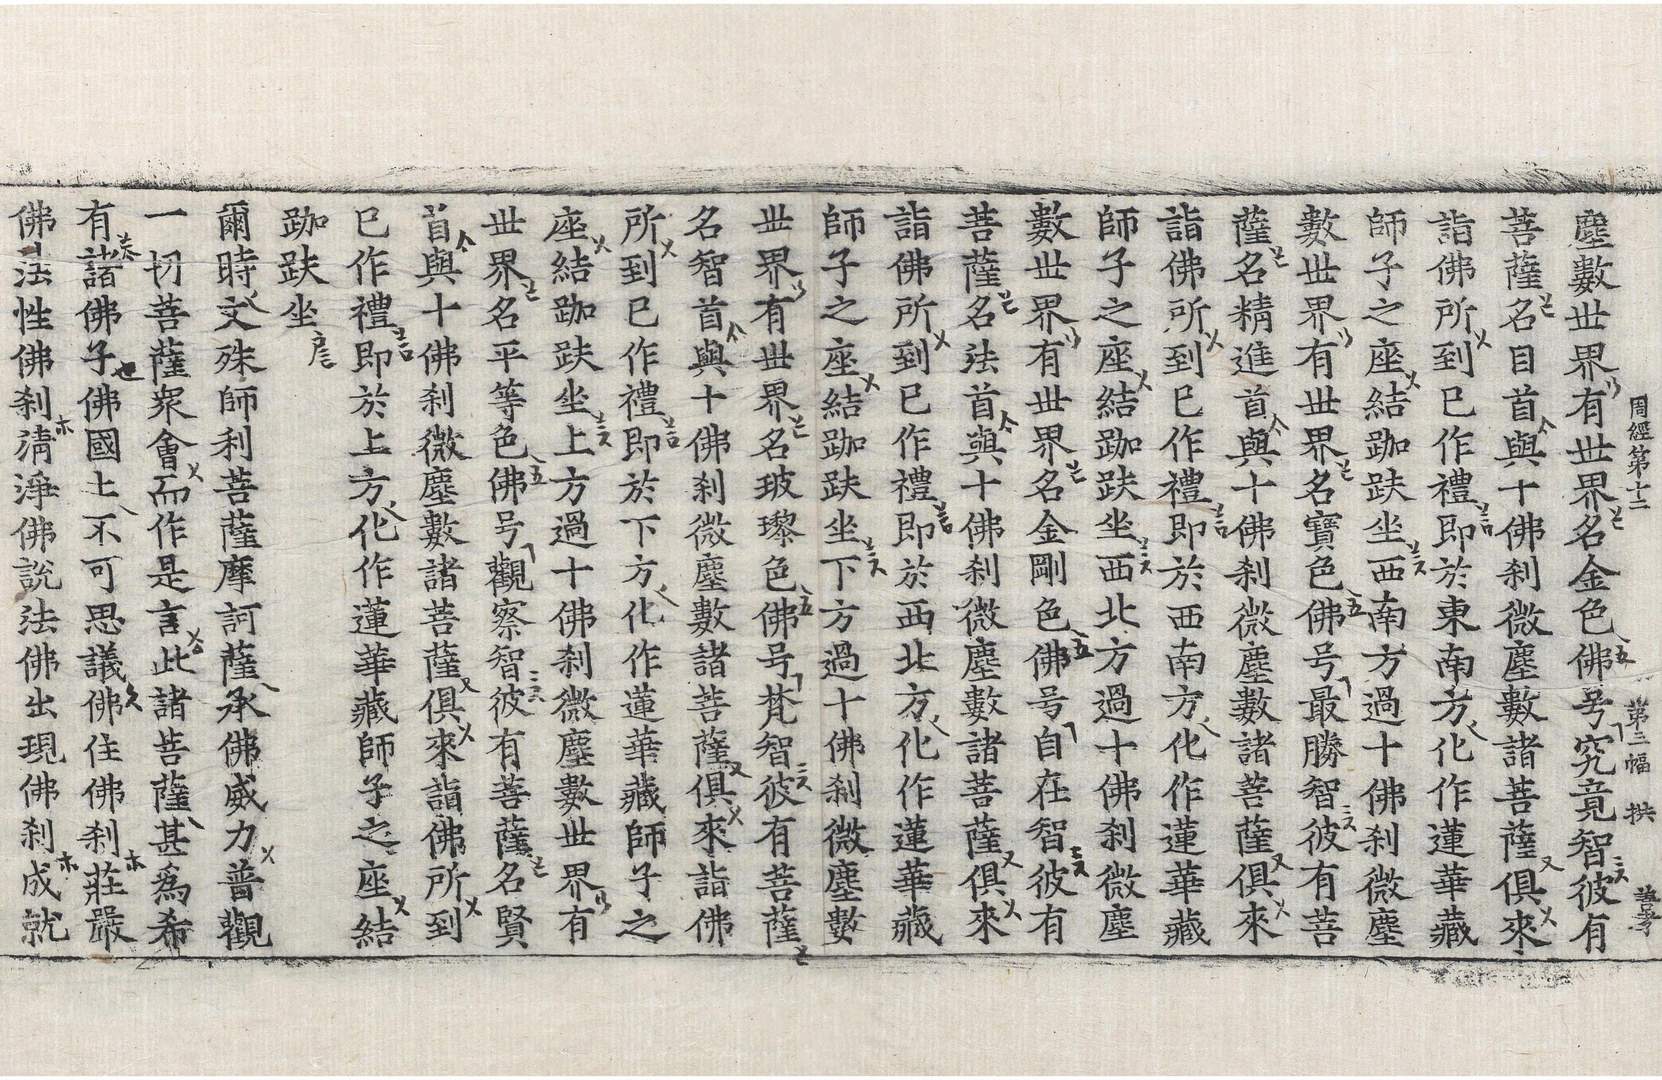 周經第十二 第三幅 拱
塵數世界有世界名金色佛号究竟智彼有
菩薩名目首與十佛刹微塵數諸菩薩俱來
詣佛所到已作禮即於東南方化作蓮華藏
師子之座結跏趺坐西南方過十佛刹微塵
數世界有世界名寶色佛号最勝智彼有菩
薩名精進首與十佛刹微塵數諸菩薩俱來
詣佛所到已作禮即於西南方化作蓮華藏
師子之座結跏趺坐西北方過十佛刹微塵
數世界有世界名金剛色佛号自在智彼有
菩薩名法首與十佛刹微塵數諸菩薩俱來
詣佛所到已作禮即於西北方化作蓮華藏
師子之座結跏趺坐下方過十佛刹微塵數
世界有世界名玻瓈色佛号梵智彼有菩薩
名智首與十佛刹微塵數諸菩薩俱來詣佛
所到已作禮即於下方化作蓮華藏師子之
座結跏趺坐上方過十佛刹微塵數世界有
世界名平等色佛号觀察智彼有菩薩名賢
首與十佛刹微塵數諸菩薩俱來詣佛所到
已作禮即於上方化作蓮華藏師子之座結
跏趺坐
爾時文殊師利菩薩摩訶薩承佛威力普觀
一切菩薩眾會而作是言此諸菩薩甚為希
有諸佛子佛國土不可思議佛住佛刹莊嚴
佛法性佛刹淸淨佛說法佛出現佛刹成就